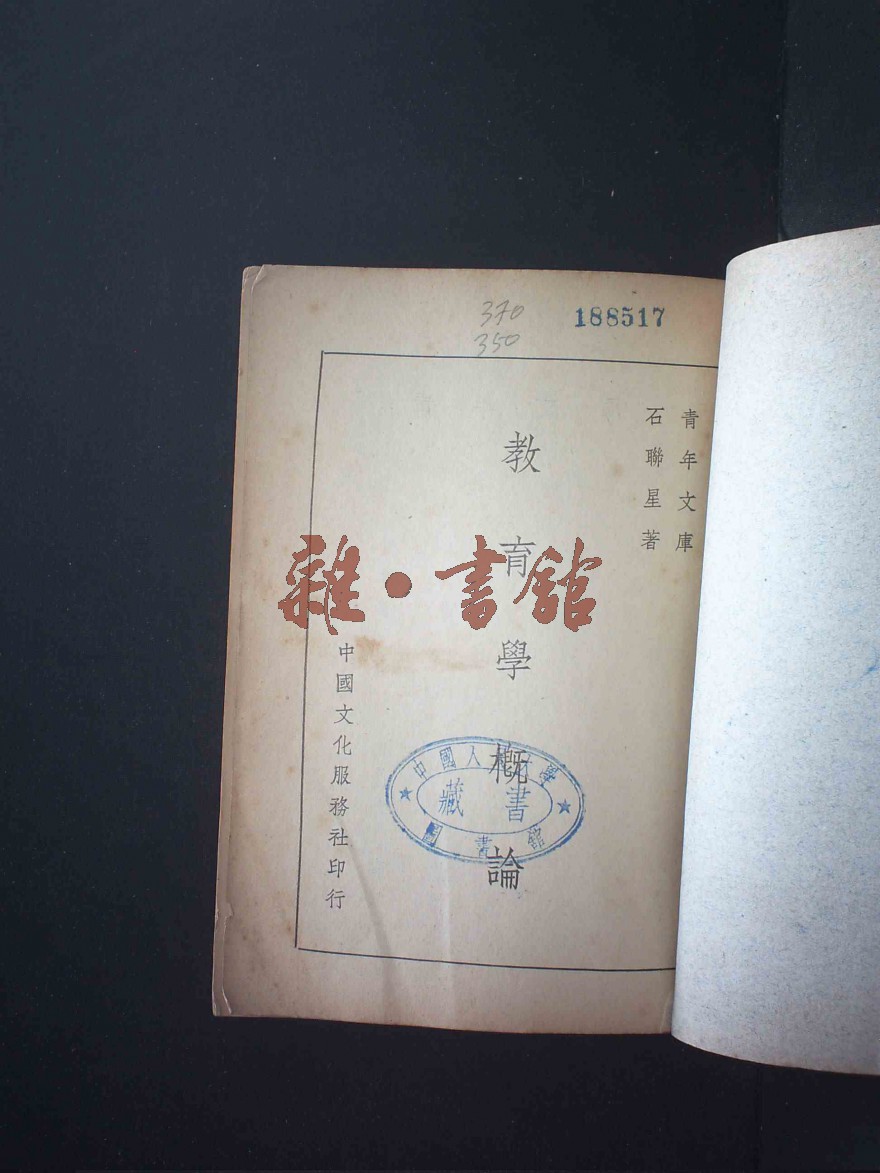 370
350
188517
青年文庫
石聯星著
教育學概論
中國文化服務社印行
雜·書舘
中國人
藏書
圖書館